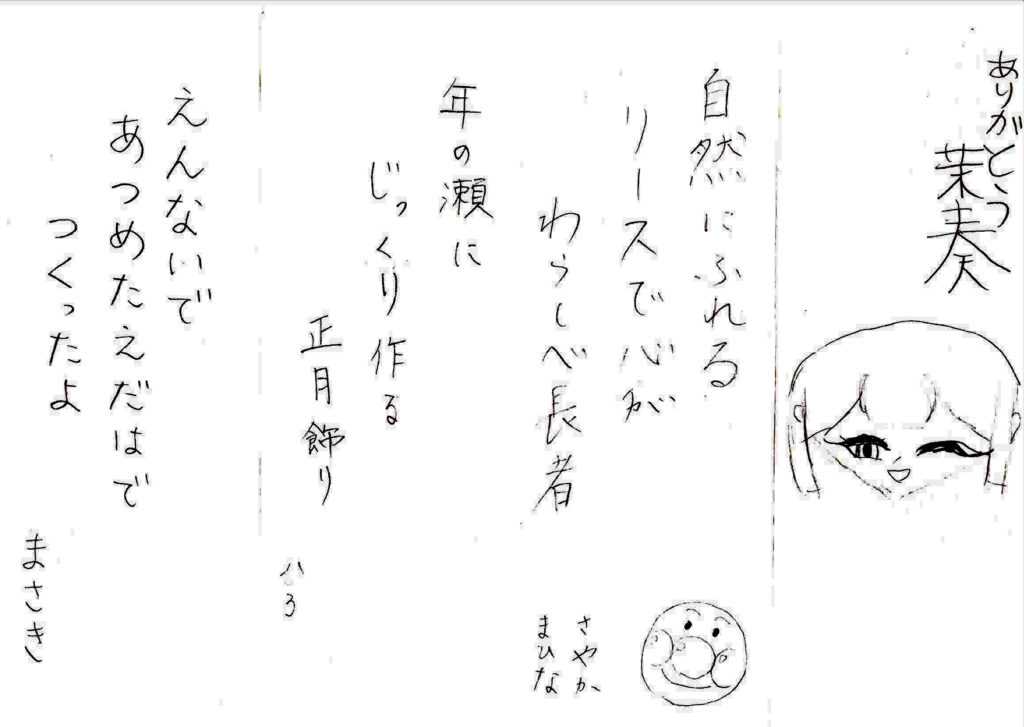 ありがとう
茉奏
自然にふれる
リースで心が
わらしべ長者
さやか
まひな
年の瀬に
じっくり作る
正月飾り
えんないで
あつめたえだはで
つくったよ
まさき